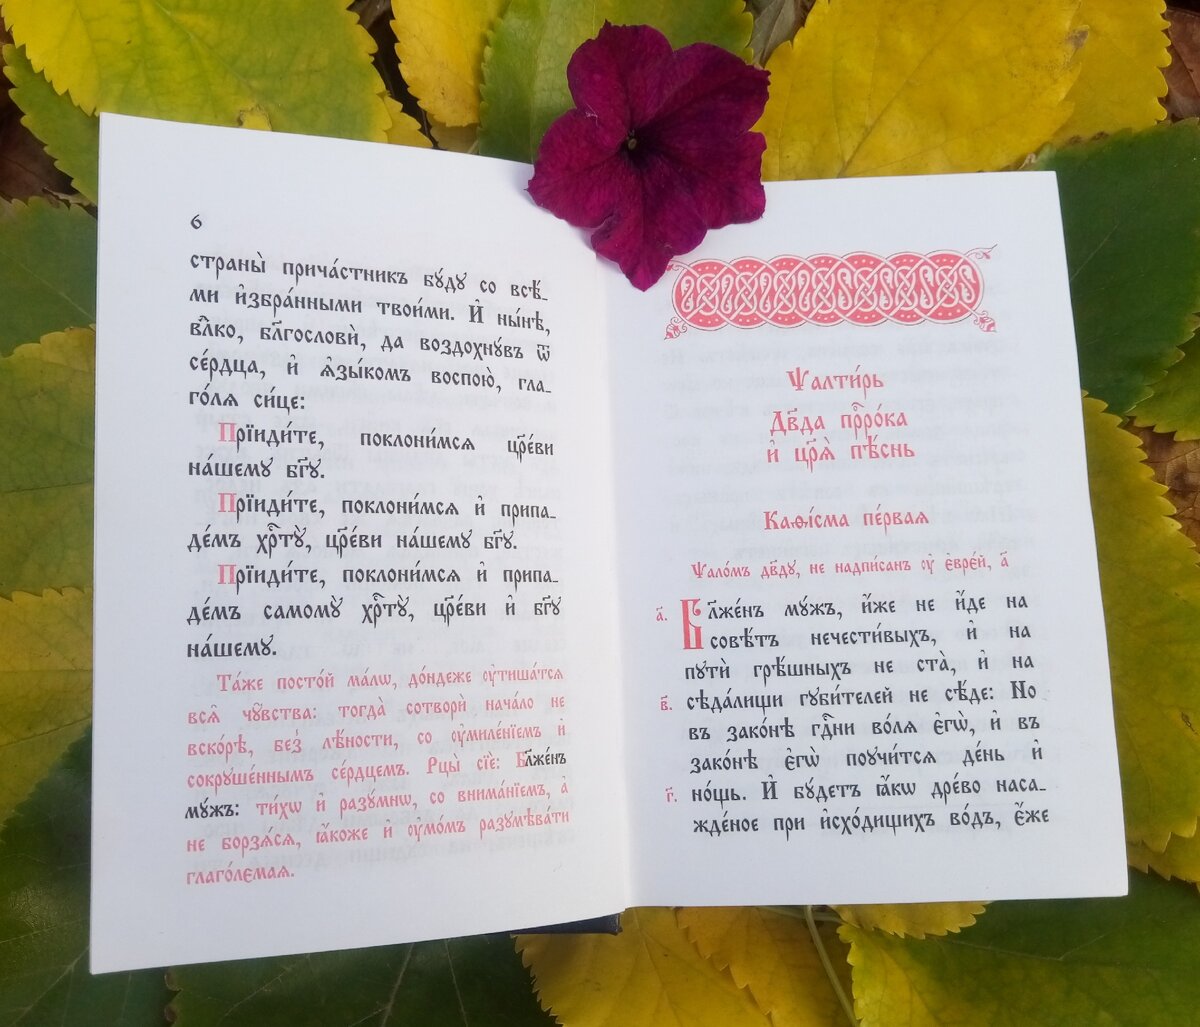 6
страны̀ прича́стникъ бꙋ́дꙋ со всѣ́-
ми и҆збра́нными твои́ми. И҆ ны́нѣ,
влⷣко, блг҇ословѝ, да воздохнꙋ́въ ѿ
се́рдца, и҆ ѧ҆зы́комъ воспою̀, гла-
го́лѧ си́це:
Прїиди́те, поклони́мсѧ цр҃е́ви
на́шемꙋ бг҃ꙋ.
Прїиди́те, поклони́мсѧ и҆ припа-
де́мъ хрⷭ҇тꙋ̀, цр҃е́ви на́шемꙋ бг҃ꙋ.
Прїиди́те, поклони́мсѧ и҆ припа-
де́мъ самомꙋ̀ хрⷭ҇тꙋ̀, цр҃е́ви и҆ бг҃ꙋ
на́шемꙋ.
Та́же посто́й ма́лѡ, до́ндеже ᲂу҆тиша́тсѧ
всѧ̑ чꙋ̑вства: тогда̀ сотворѝ нача́ло не
вско́рѣ, без̾ лѣ́ности, со ᲂу҆миле́нїемъ и҆
сокрꙋше́ннымъ се́рдцемъ. Рцы̀ сїѐ: Бл҃же́нъ
мꙋ́жъ: ти́хѡ и҆ разꙋ́мнѡ, со внима́нїемъ, а҆
не борзѧ́сѧ, ꙗ҆́коже и҆ ᲂу҆мо́мъ разꙋмѣва́ти
глаго́лємаѧ.
Ѱалти́рь
Дв҃да прⷪ҇ро́ка
и҆ цр҃ѧ̀ пѣ́снь
Каѳі́сма пе́рваѧ
Ѱало́мъ дв҃дꙋ, не надпи́санъ ᲂу҆ є҆вре́й, а҃
а҃. Бл҃же́нъ мꙋ́жъ, и҆́же не и҆́де на
совѣ́тъ нечести́выхъ, и҆ на
пꙋтѝ грѣ́шныхъ не ста̀, и҆ на
в҃. сѣда́лищи гꙋби́телей не сѣ́де: Но
въ зако́нѣ гдⷭ҇ни во́лѧ є҆гѡ̀, и҆ въ
зако́нѣ є҆гѡ̀ поꙋчи́тсѧ де́нь и҆
г҃. но́щь. И҆ бꙋ́детъ ꙗ҆́кѡ дре́во наса-
жде́ное при и҆схо́дищихъ во́дъ, є҆́же